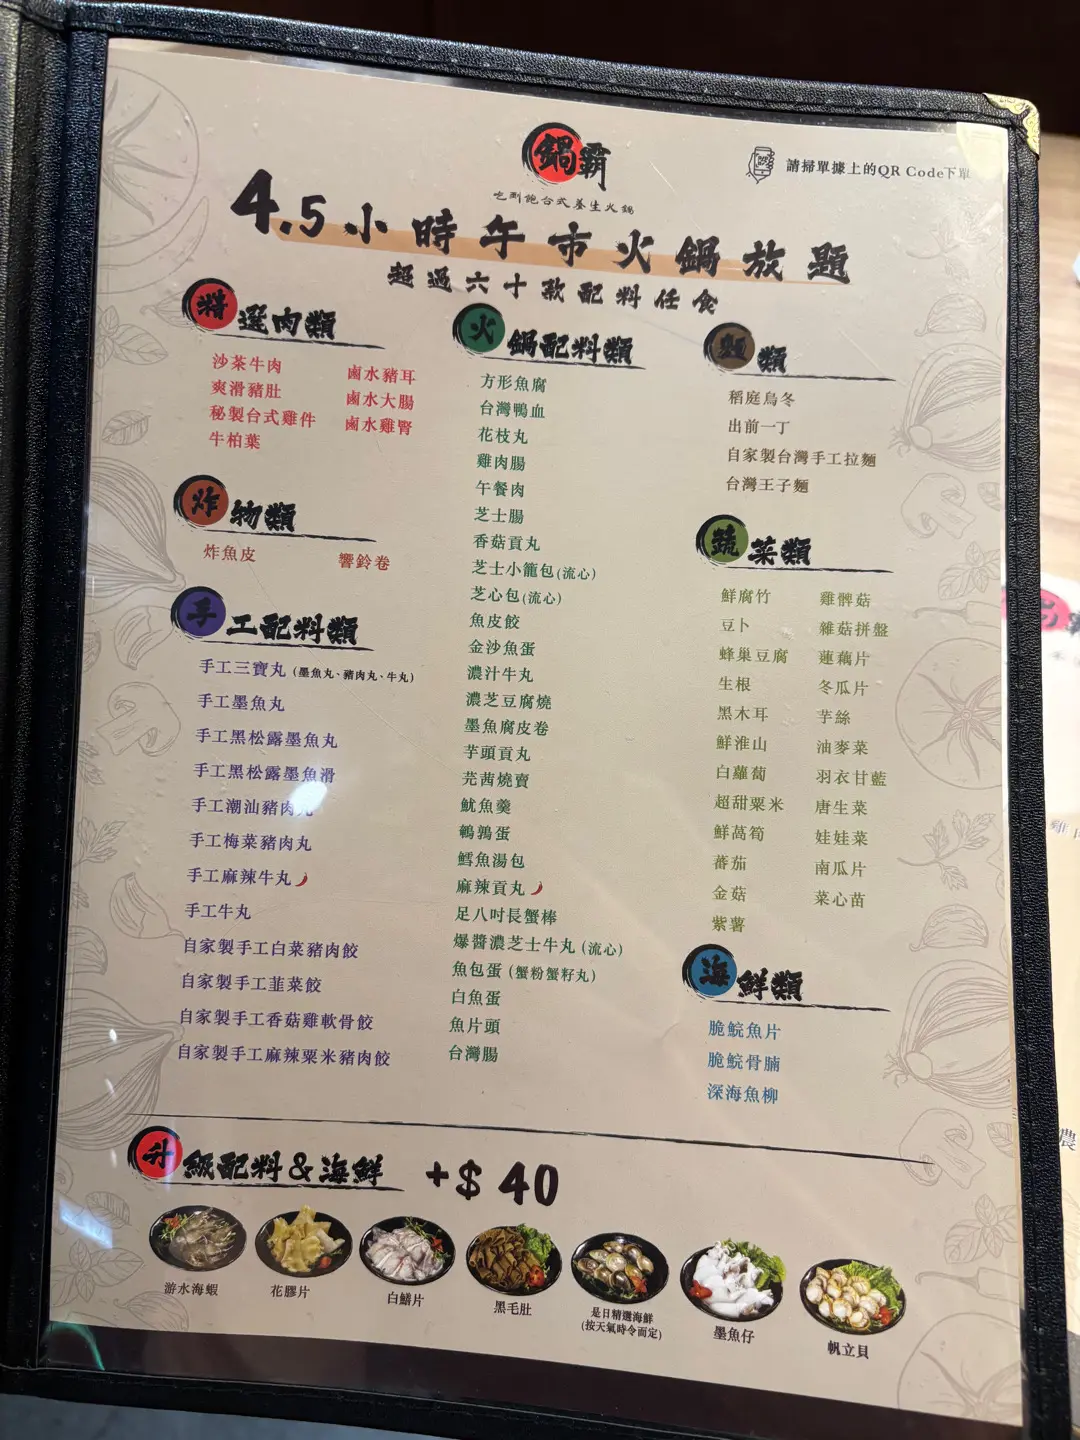 鍋霸
吃到飽台式養生火鍋
請掃單據上的QR Code下單
4.5小時午市火鍋放題
超過六十款配料任食
精選肉類
沙茶牛肉
爽滑豬肚
秘製台式雞件
牛柏葉
鹵水豬耳
鹵水大腸
鹵水雞腎
炸物類
炸魚皮
響鈴卷
手工配料類
手工三寶丸(墨魚丸、豬肉丸、牛丸)
手工墨魚丸
手工黑松露墨魚丸
手工黑松露墨魚滑
手工潮汕豬肉丸
手工梅菜豬肉丸
手工麻辣牛丸
手工牛丸
自家製手工白菜豬肉餃
自家製手工韮菜餃
自家製手工香菇雞軟骨餃
自家製手工麻辣粟米豬肉餃
火鍋配料類
方形魚腐
台灣鴨血
花枝丸
雞肉腸
午餐肉
芝士腸
香菇貢丸
芝士小籠包(流心)
芝心包(流心)
魚皮餃
金沙魚蛋
濃汁牛丸
濃芝豆腐燒
墨魚腐皮卷
芋頭貢丸
芫茜燒賣
魷魚羹
鵪鶉蛋
鱈魚湯包
麻辣貢丸
足八吋長蟹棒
爆醬濃芝士牛丸(流心)
魚包蛋(蟹粉蟹籽丸)
白魚蛋
魚片頭
台灣腸
麵類
稻庭烏冬
出前一丁
自家製台灣手工拉麵
台灣王子麵
蔬菜類
鮮腐竹
豆卜
蜂巢豆腐
生根
黑木耳
鮮淮山
白蘿蔔
超甜粟米
鮮萵筍
蕃茄
金菇
紫薯
雞髀菇
雜菇拼盤
蓮藕片
冬瓜片
芋絲
油麥菜
羽衣甘藍
唐生菜
娃娃菜
南瓜片
菜心苗
海鮮類
脆鯇魚片
脆鯇骨腩
深海魚柳
升級配料&海鮮 +$40
游水海蝦
花膠片
白鱔片
黑毛肚
是日精選海鮮
(按天氣時令而定)
墨魚仔
帆立貝